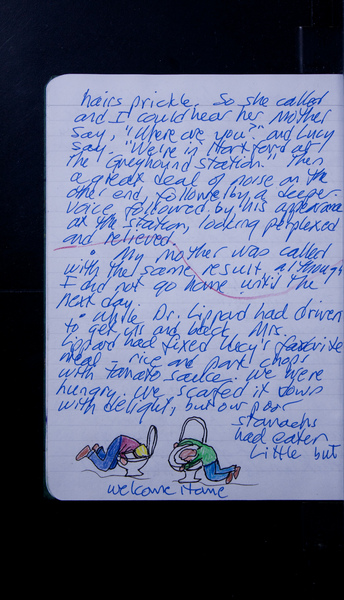 hairs prickle. So she called
and I could hear her Mother
say, "Where are you?" and Lucy
say: "We're in Hartford at
the Greyhound Station." Then
a great deal of noise on the
other end, followed by a deeper
voice followed by his appearance
at the station, looking perplexed
and relieved.
• My mother was called
with the same result, although
I did not go home until the
next day.
• While Dr. Lippard had driven
to get us and back, Mrs.
Lippard had fixed Lucy's favorite
meal – rice and pork chops
with tomato sauce. We were
hungry. We scarfed it down
with delight, but our poor
stomachs
had eaten
little but
welcome Home